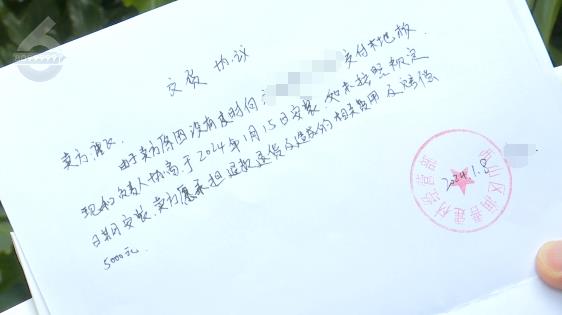 交货协议
卖方承认
由于卖方原因没有及时向 交付木地板
现和负责人协商于2024年1月15日安装,如未按照规定
日期安装,卖方愿承担退款退货及造成的相关费用及赔偿
5000元.
2024.1.8